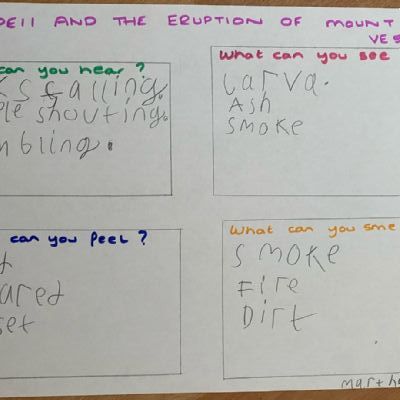 PEII AND THE ERUPTION OF MOUNT
VES
can you hear?
ks falling.
ple shouting.
mbling.
What can you see
Larva.
Ash
Smoke
can you feel?
t
ared
set
What can you sme
Smoke
Fire
Dirt
martha